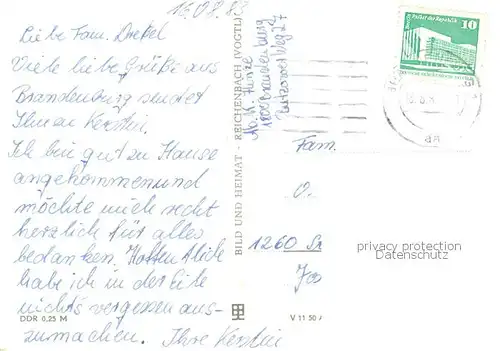 16.08.83
Liebe Fam. Drekel
Viele liebe Grüße aus
Brandenburg sendet
Ihnen Kerstin.
Ich bin gut zu Hause
angekommen und
möchte mich recht
herzlich für alles
bedanken. Hoffentlich
habe ich in der Eile
nichts vergessen aus-
zumachen. Ihre Kerstin
DDR 0,25 M
BILD UND HEIMAT · REICHENBACH (VOGTL)
Ab. K.
1800 Brandenburg
Palast der Republik
10
Fam.
O.
1260
V 11 50
privacy protection
Datenschutz